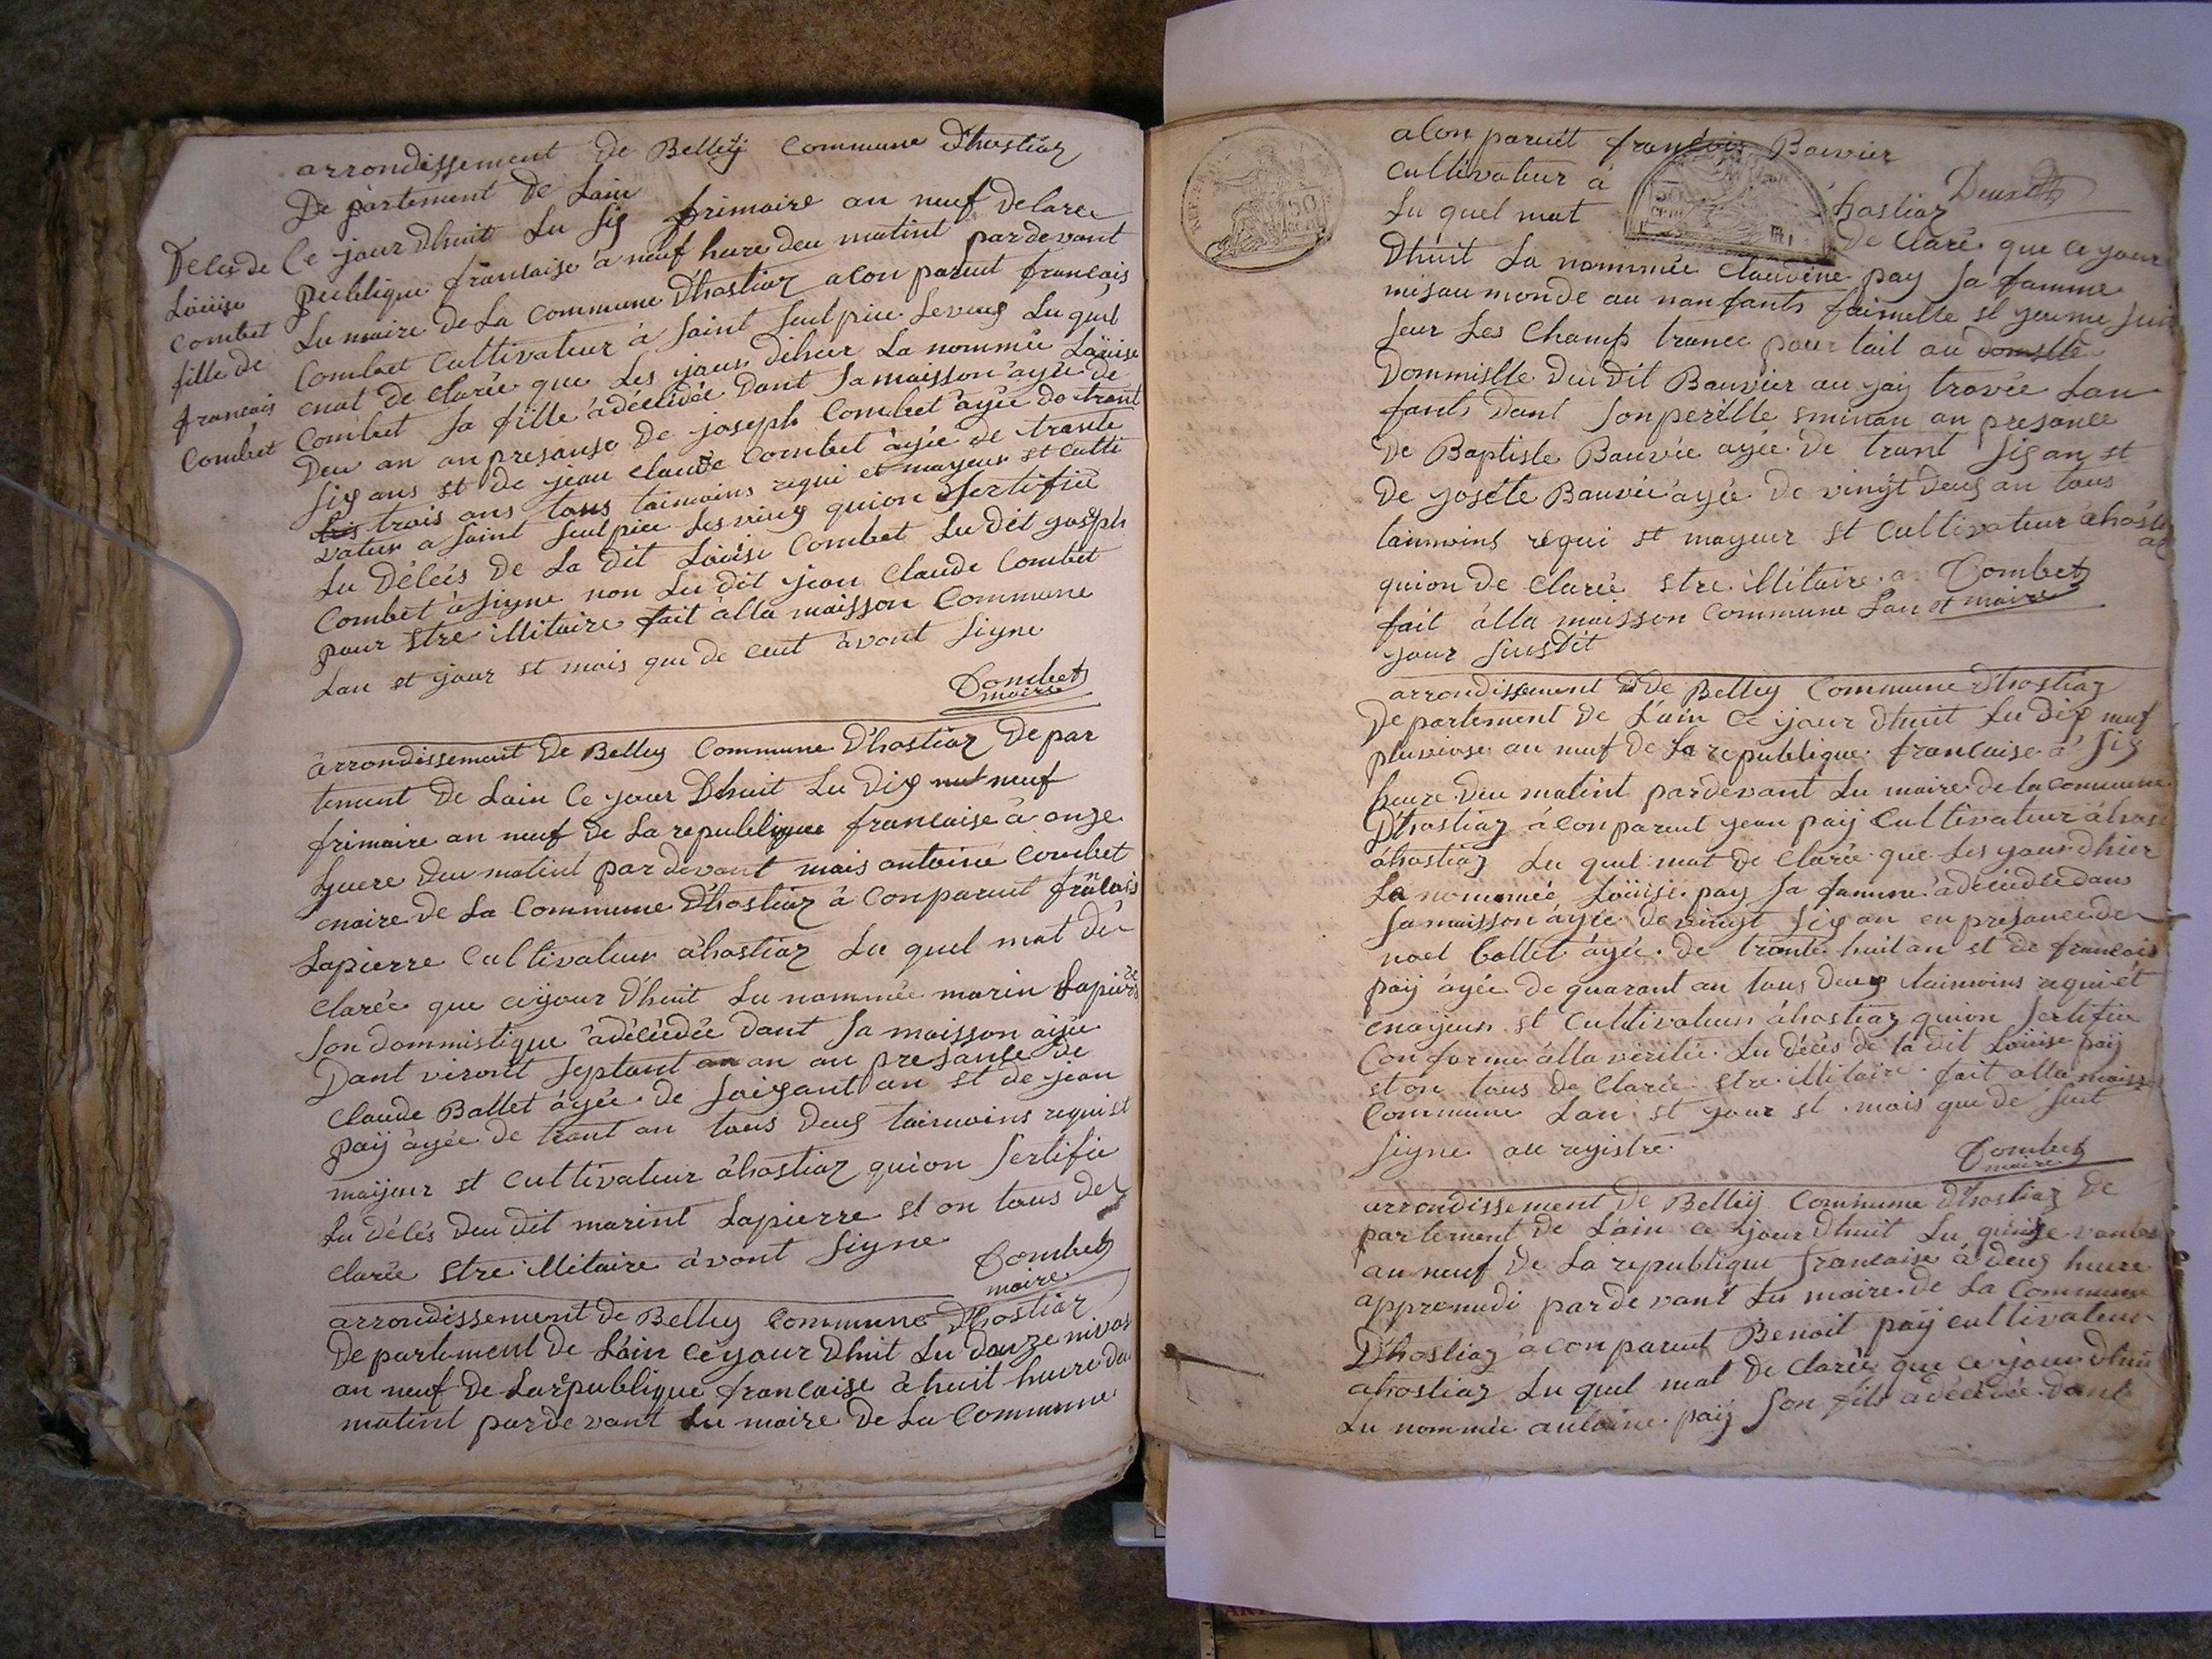 arrondissement De Belleÿ Commune Dhostiaz
De partement De Lain
Ce jour Dhuit Lu Sis frimaire an neuf Delaree
publique francaise a neuf heure deu matint pardevant
Lu maire de La Commune Dhostiaz a Conparut francois
Combet Cultivateur à Saint Seulpice Levieus Lu quel
mat De Clarée que Les jour dihier La nommée Loüise
Combet Sa fille à décédée Dant Sa maisson ayée de
Deu an an presanse De joseph Combet ayée de trant
Sis ans et de jean Claude Combet àyée de trante
trois ans tous taimoins requi et mayeur et Culti
vateur a Saint Seulpice Lesvieus quion Sertifiée
Lu Décés De La dit Loüise Combet Lu dit joseph
Combet à Signe non Lu dit jean Claude Combet
pour etre illitaire fait àlla maisson Commune
Lan et jour et mois que de cut àvant Signe
Combet
maire
Deces de
Loüise
Combet
fille de
francois
Combet
arrondissement De Belley Commune Dhostiaz De par
tement De Lain Ce jour Dhuit Lu Dis neuf
frimaire an neuf de La republique francaise à onze
heure deu matint par devant mais antoine Combet
maire De La Commune Dhostiaz à Conparut
Lapierre Cultivateur àhostiaz Lu quel mat Dé
Clarée que ce jour Dhuit Lu nommée marin Lapierre
Son dommistique àdécédée Dant Sa maisson àyée
Dant viront Septant an au presance De
Claude Ballet àyée de Soisant an et de jean
paÿ àyée De trant an tous Deus taimoins requi et
maÿeur et Cultivateur àhostiaz quion Sertifie
Lu décés deu dit marint Lapierre et on tous de
Clarée etre illitaire àvant Signe
Combet
maire
arrondissement De Belley Commune Dhostiaz
De partement De Lain ce jour Dhuit Lu douze nivos
an neuf De La republique francaise à huit heure du
matint pardevant Lu maire De La Commune
a Con paruit francois Bouvier
Cultivateur à hostiaz
Lu quel mat De Clarée que ce jour
Dhuit La nommée Claudine pay Sa famme
mis au monde au nanfants faimelle
Seur Les Champ
Dommislle Deu Dit Bauvier au jaÿ trovée Lan
fants Dant
De Baptiste Bauvée ayée De trant Sis an et
De joséte Bauvée ayée De vingt Deus an tous
taimoins requi et mayeur et Cultivateur àhostiaz
quion De Clarée etre illitaire
Combet
maire
fait àlla maisson Commune Lan et
jour Susdit
arrondissement De Belley Commune Dhostiaz
De partement De Lain Ce jour Dhuit Lu Dis neuf
pluviose an neuf de La republique francaise à Sis
heure deu matint pardevant Lu maire de la commune
Dhostiaz à Conparut jean paÿ Cultivateur
àhostiaz Lu quel mat De Clarée que Les jour dhier
La nommée Loüise pay Sa famme à décédée dans
Sa maisson àyée de vingt Sis an en presance de
noel Ballet àyée De trante huit an et de francois
paÿ àyée De quarant an tous Deus taimoins requi et
mayeur et Cultivateur àhostiaz quion Sertifiee
Conforme àlla vèritée Lu Décés de la dit Loüise paÿ
et on tous De Clarée etre illitaire fait alla maisson
Commune Lan et jour et mois que de Suit
Signe au registre
Combet
maire
arrondissement De Belleÿ Commune Dhostiaz De
partement De Lain ce jour Dhuit Lu quinze
an neuf De La republique francaise à deus heure
appremidi pardevant Lu maire de La Commune
Dhostiaz à con parut Benoit paÿ cultivateur
ahostiaz Lu quel mat De Clarée que ce jour dhui
Lu nommée antoine paÿ Son fils à décédée dant